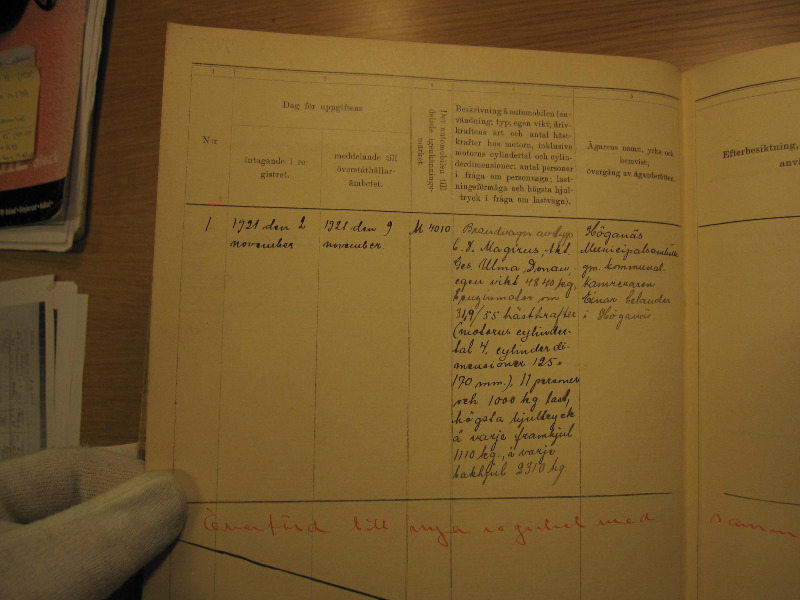 1
2
3
4
5
Dag för uppgiftens
N:r
intagande i re-
gistret.
meddelande till
överståthållar-
ämbetet.
Det automobilen till-
delade igenkännings-
märket.
Beskrivning å automobilen (an-
vändning; typ; egen vikt; driv-
kraftens art och antal häst-
krafter hos motorn, inklusive
motorns cylindertal och cylin-
derdimensioner; antal personer
i fråga om personvagn; last-
ningsförmåga och högsta hjul-
tryck i fråga om lastvagn).
Ägarens namn, yrke och
hemvist;
övergång av äganderätten.
Efterbesiktning,
1.
1921 den 2
november
1921 den 9
november.
M 4010
Brandvagn av typ
C. D. Magirus, Akt.
Ges. Ulma, Donau,
egen vikt 4840 kg,
bensinmotor om
31,9/55 hästkrafter
(motorns cylinder-
tal 4, cylinderdi-
mensioner 125 ×
170 mm.). 11 personer
och 1000 kg last,
högsta hjultryck
å varje framhjul
1110 kg., å varje
bakhjul 2310 kg.
Höganäs
Municipalsamhälle
gm. kommunal-
kamreraren
Einar
i Höganäs
Överförd till nya registret med samm
block